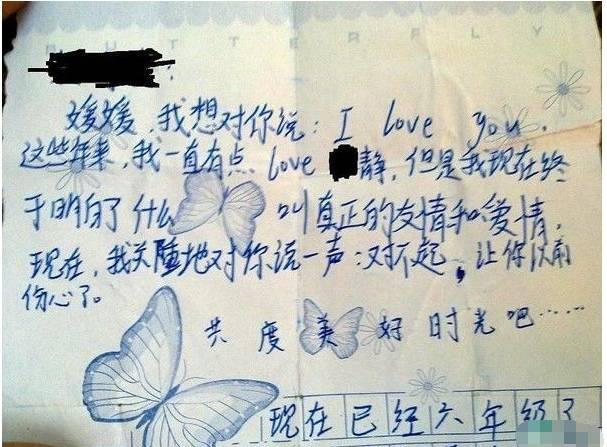 BUTTERFLY
媛媛，我想对你说：I love you.
这些年来，我一直有点 love 静，但是我现在终
于明白了什么叫真正的友情和爱情，
现在，我关睡地对你说一声：对不起，让你以前
伤心了。
共度美好时光吧……
现在已经六年级了